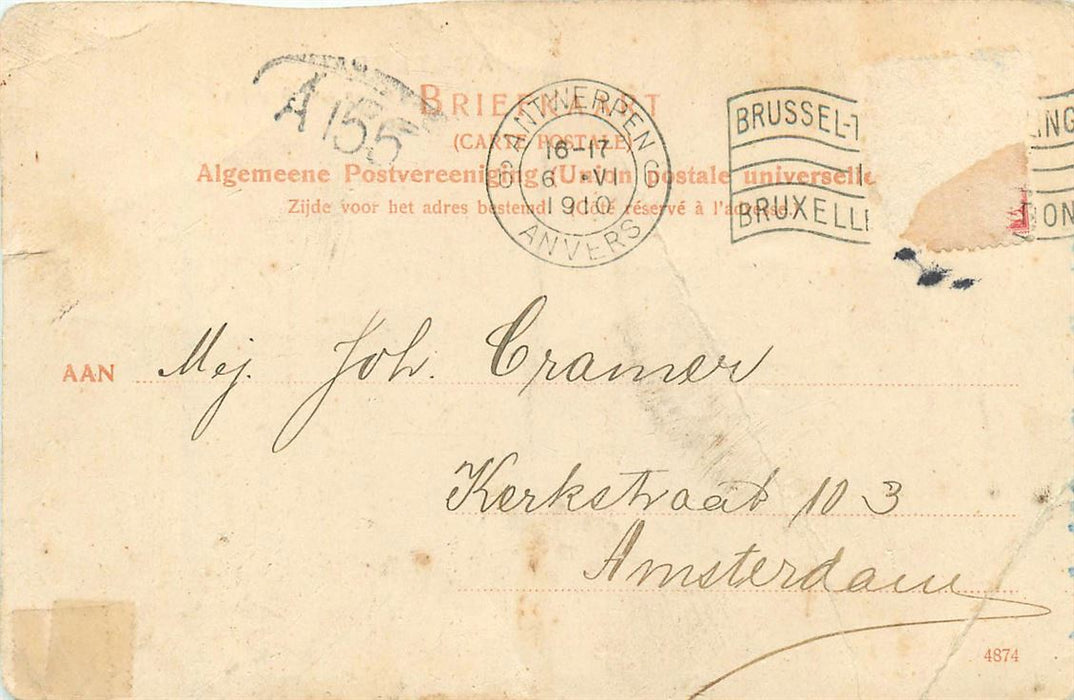 A 155
BRIEFKAART
(CARTE POSTALE)
Algemeene Postvereeniging (Union postale universelle
Zijde voor het adres bestemd. (Côté réservé à l'adresse.)
ANTWERPEN
16-17
6 VI
1910
ANVERS
BRUSSEL-T
LING
BRUXELLE
ION
AAN Mej. Joh. Cramer
Kerkstraat 103
Amsterdam
4874